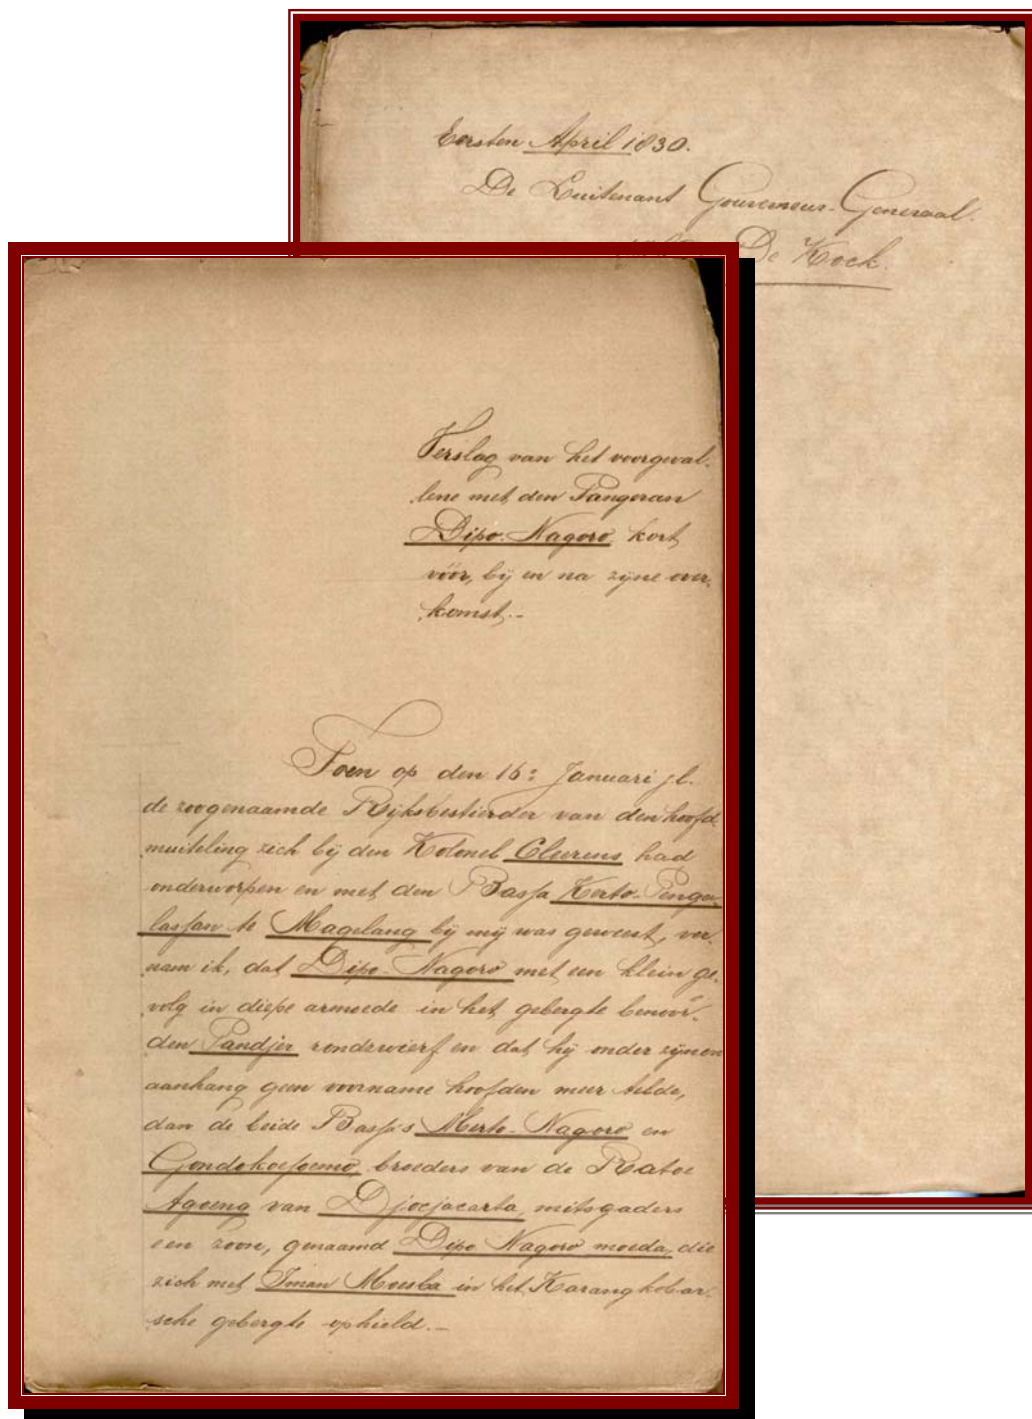 Eersten April 1830.
De Luitenant Gouverneur-Generaal.
De Kock.
Verslag van het voorgeval-
lene met den Pangeran
Dipo-Nagoro kort
vóór, bij en na zijne over-
komst.-
Toen op den 16: Januari jl.
de zoogenaamde Rijksbestierder van den hoofd-
muiteling zich bij den Kolonel Cleerens had
onderworpen en met den Bassa Kerto-Penga-
lassan te Magelang bij mij was geweest, ver-
nam ik, dat Dipo-Nagoro met een klein ge-
volg in diepe armoede in het gebergte benoor-
den Pandjer rondzwierf en dat hij onder zijnen
aanhang geen voorname hoofden meer telde,
dan de beide Bassa's Merto-Nagoro en
Gondokoesoemo, broeders van de Ratoe
Agoeng van Djocjacarta, mitsgaders
een zoon, genaamd Dipo Nagoro moeda, die
zich met Iman Moesba in het Karangkobar-
sche gebergte ophield.-